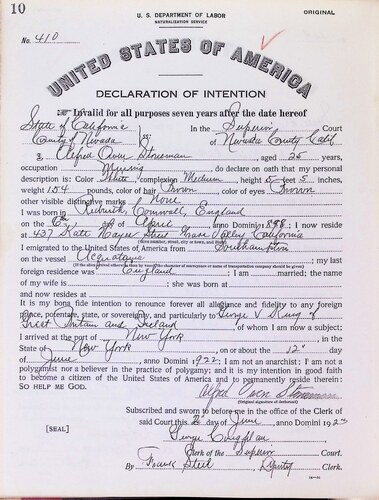 10
U. S. DEPARTMENT OF LABOR
NATURALIZATION SERVICE
ORIGINAL
No. 410
UNITED STATES OF AMERICA
DECLARATION OF INTENTION
Invalid for all purposes seven years after the date hereof
State of California
County of Nevada
ss:
In the Superior Court
of Nevada County Calif
I, Alfred Stoneman, aged 25 years,
occupation Mining, do declare on oath that my personal
description is: Color White, complexion Medium, height 5 feet 5 inches,
weight 154 pounds, color of hair Brown, color of eyes Brown
other visible distinctive marks None
I was born in Redruth, Cornwall, England
on the day of April, anno Domini 1898; I now reside
at 437 State Street Grass Valley, California
(Give number, street, city or town, and State.)
I emigrated to the United States of America from Southampton
on the vessel Acquataine; my last
(If the alien arrived otherwise than by vessel, the character of conveyance or name of transportation company should be given.)
foreign residence was England; I am married; the name
of my wife is; she was born at
and now resides at
It is my bona fide intention to renounce forever all allegiance and fidelity to any foreign
prince, potentate, state, or sovereignty, and particularly to George V King of
Great Britain and Ireland, of whom I am now a subject;
I arrived at the port of New York, in the
State of New York, on or about the 12 day
of June, anno Domini 1922; I am not an anarchist; I am not a
polygamist nor a believer in the practice of polygamy; and it is my intention in good faith
to become a citizen of the United States of America and to permanently reside therein:
SO HELP ME GOD.
Alfred Stoneman
(Original signature of declarant.)
Subscribed and sworn to before me in the office of the Clerk of
said Court this 2 day of June, anno Domini 192
[SEAL]
George Coughlan
Clerk of the Superior Court.
By Frank Steel, Deputy Clerk.